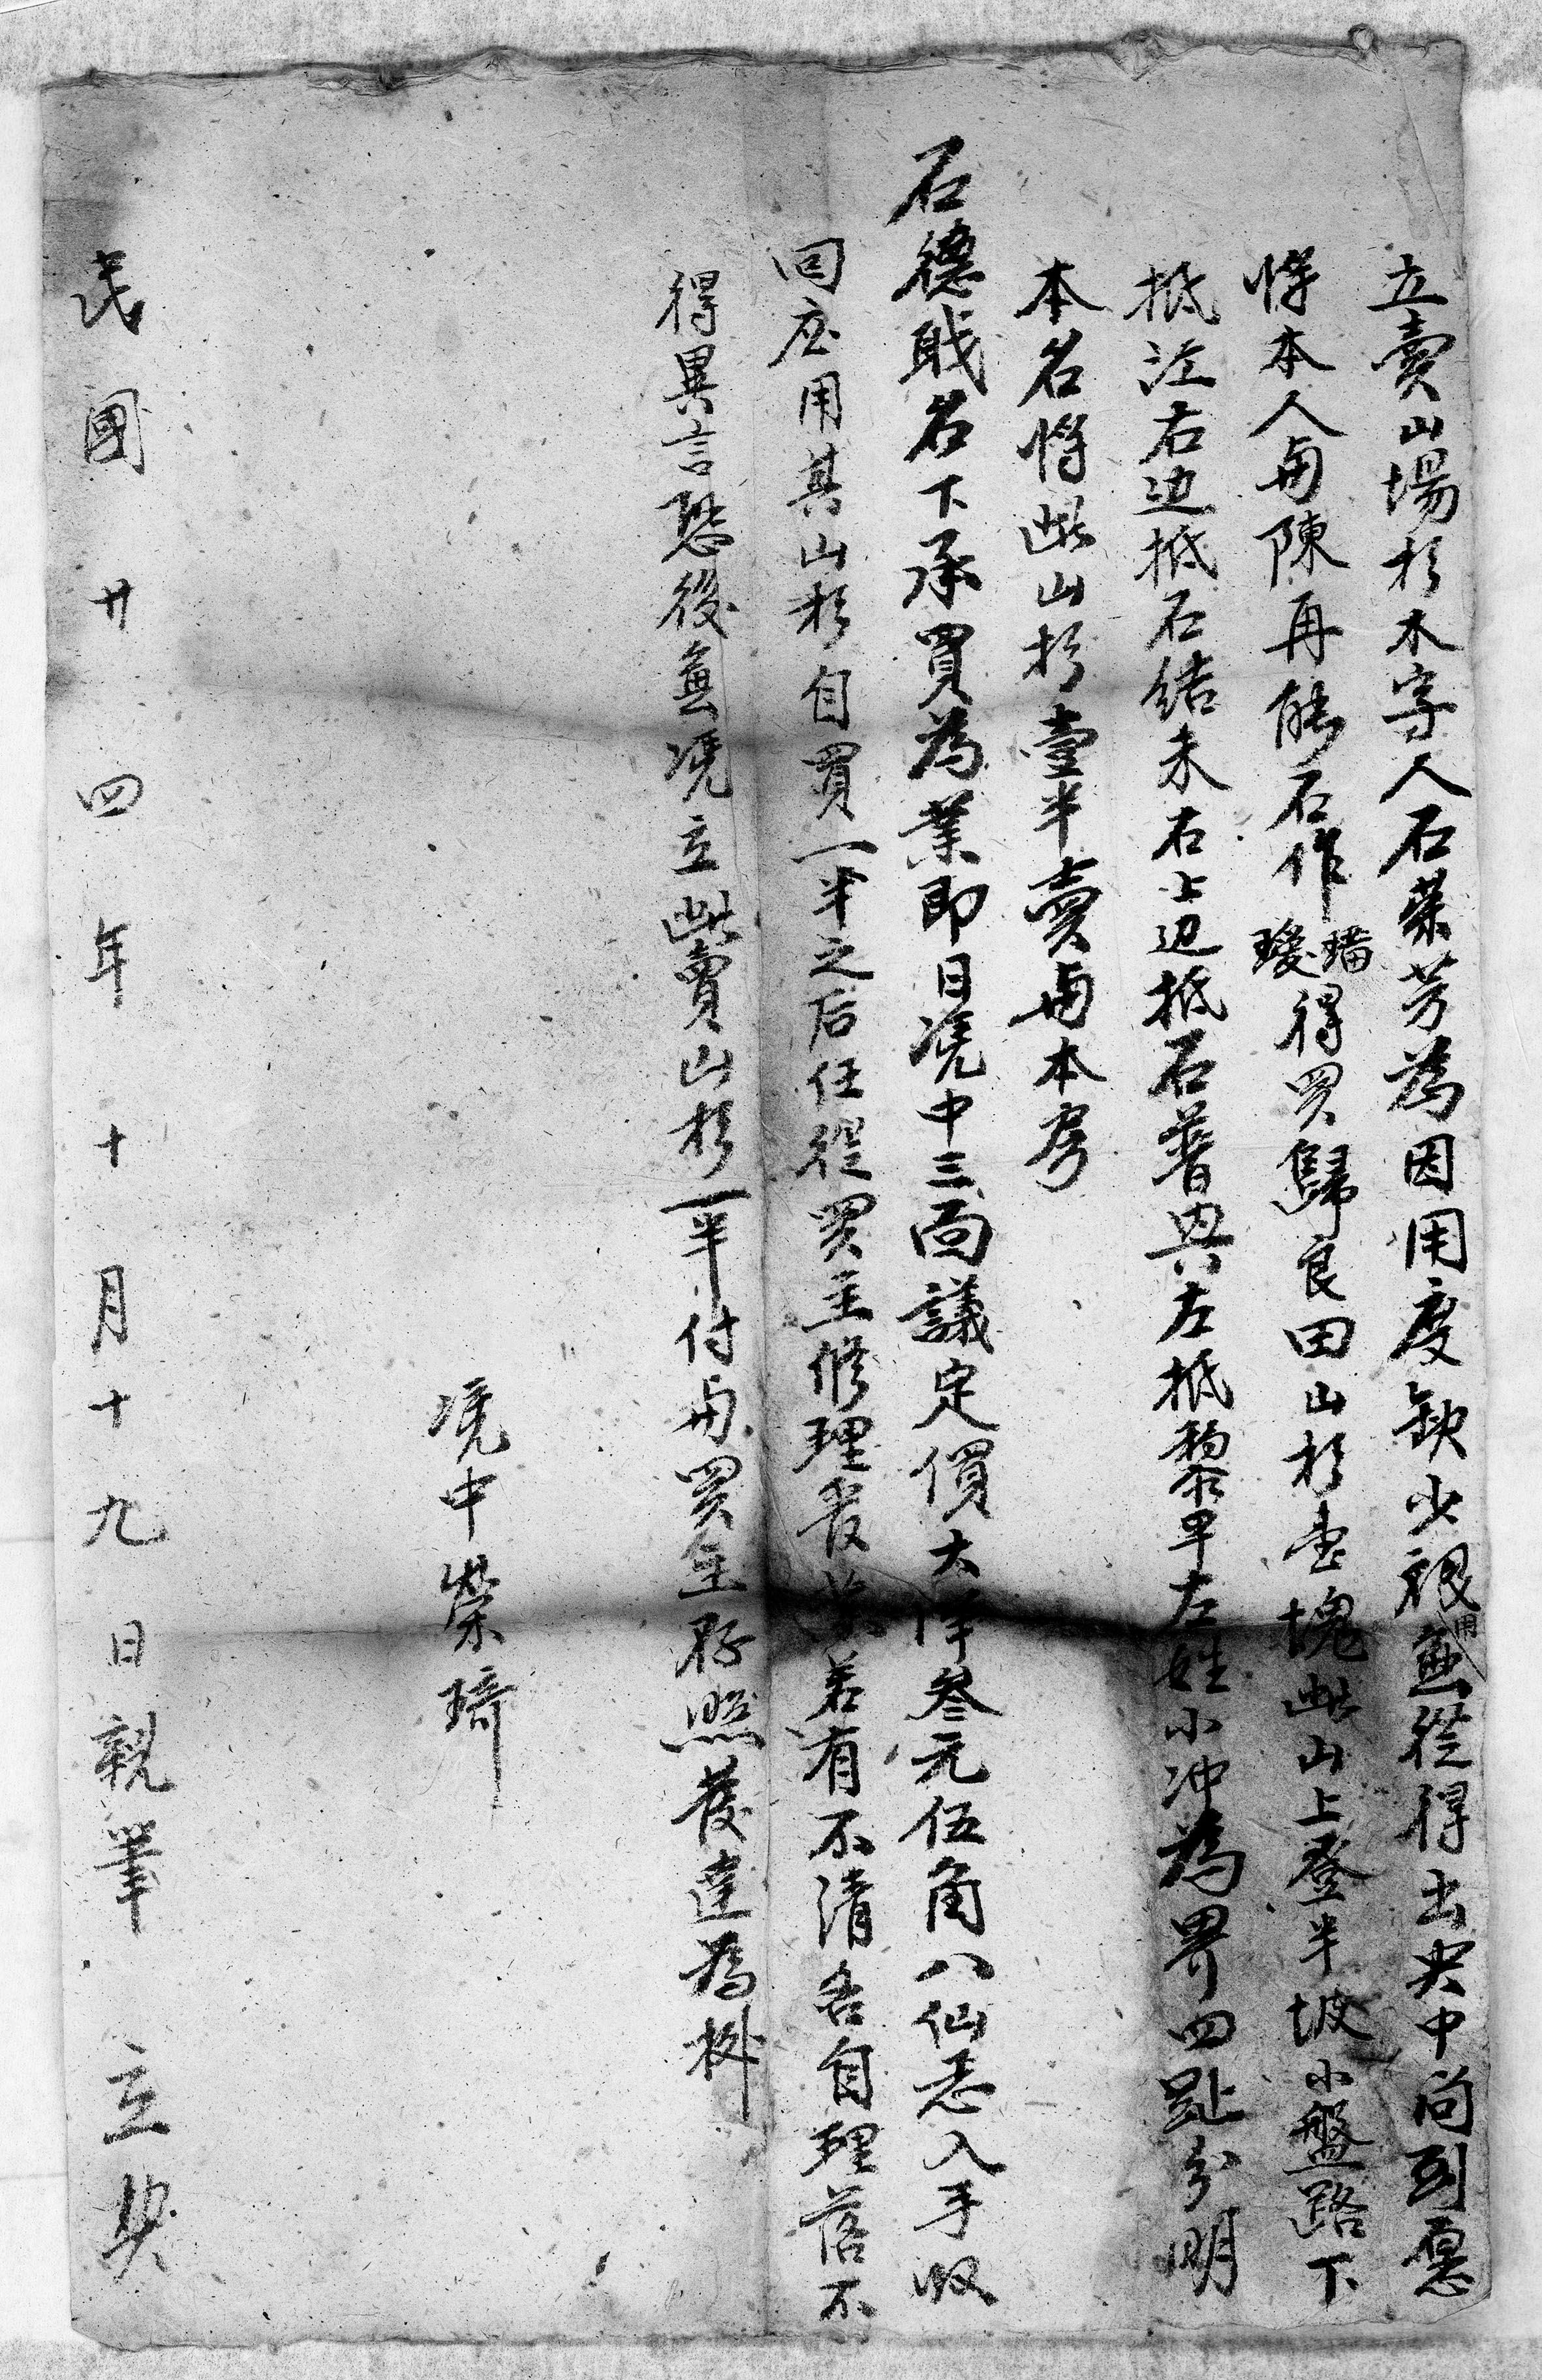 立賣山場杉木字人石荣芳為因用度缺少銀用無從得出央中问到愿
將本人与陳再能石作璠瑷得買歸良田山杉壹塊此山上登半坡小盤路下
抵江右边抵石结未右上边抵石普典左抵黎早左姓小冲為界四趾分明
本名將此山杉壹半賣与本房
石德戝名下承買為業即日凴中三面議定價大洋叁元伍角八仙悉入手收
回应用其山杉自買一半之后任從買主修理發業若有不清各自理落不
得異言恐後無凴立此賣山杉一半付与買主存照發達為柄
凴中榮琦
民國廿四年十月十九日親筆立契